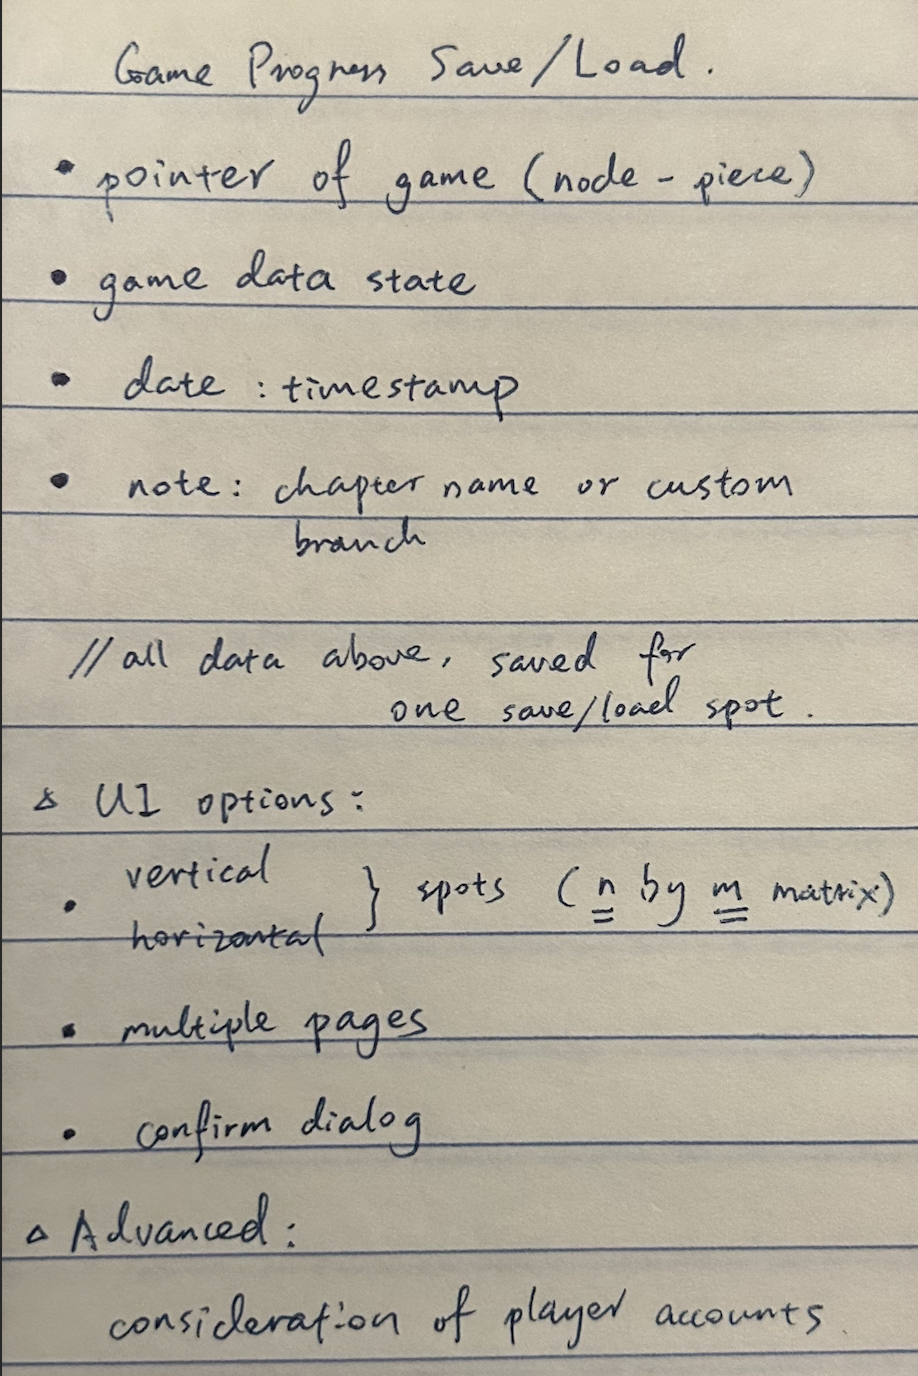 Game Progress Save/Load.
• pointer of game (node - piece)
• game data state
• date : timestamp
• note: chapter name or custom
branch
// all data above, saved for
one save/load spot.
△ UI options:
• vertical
horizontal } spots (n by m matrix)
• multiple pages
• confirm dialog
△ Advanced:
consideration of player accounts.